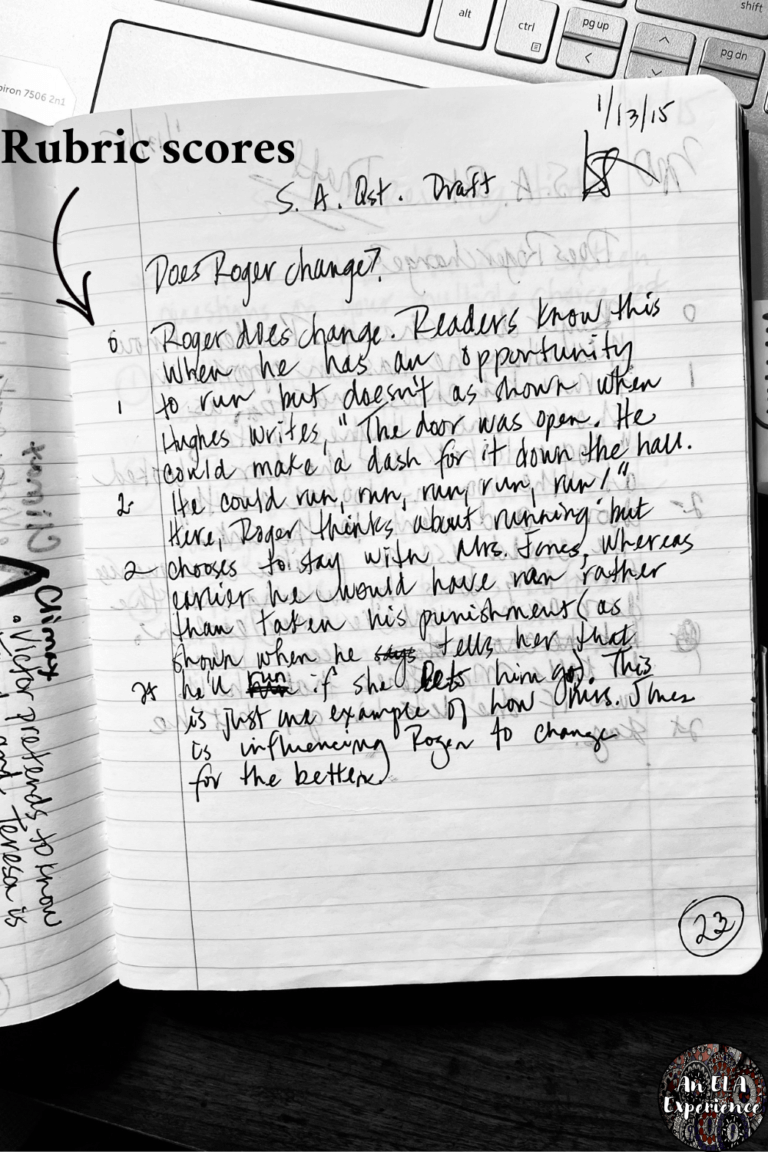 shift
alt
ctrl
pg up
pg dn
piron 7506 2n1
Rubric scores
1/13/15
S. A. Qst. Draft
Does Roger change?
0 Roger does change. Readers know this
when he has an opportunity
1 to run but doesn't as shown when
Hughes writes, "The door was open. He
could make a dash for it down the hall.
2 He could run, run, run, run, run!"
Here, Roger thinks about running but
2 chooses to stay with Mrs. Jones, whereas
earlier he would have ran rather
than taken his punishment (as
shown when he says tells her that
2+ he'll run if she lets him go). This
is just one example of how Mrs. Jones
is influencing Roger to change
for the better.
23
Climax
• Victor pretends to know
and Teresa is
An ELA
Experience